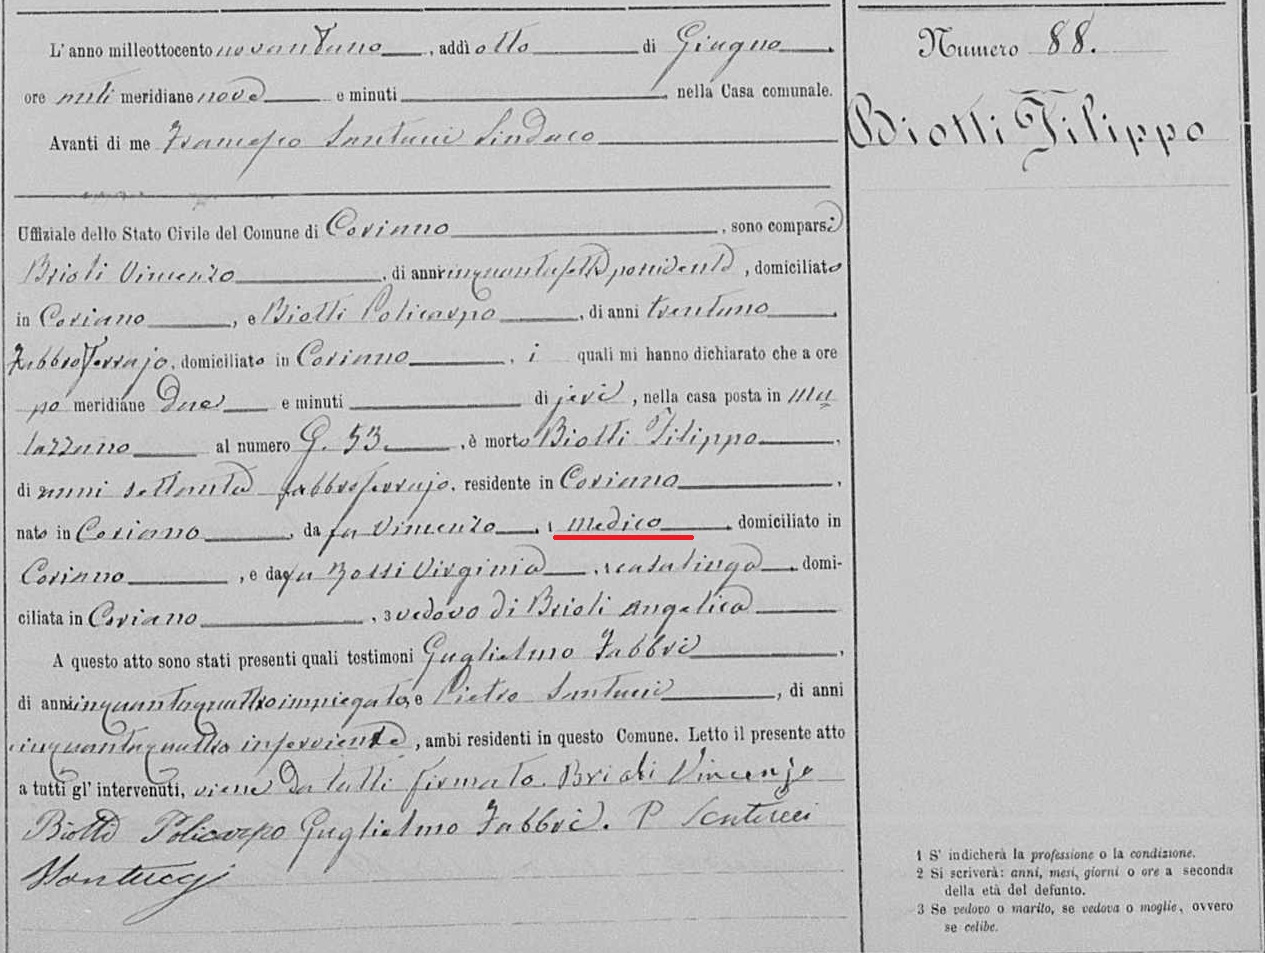 L'anno milleottocento novantuno, addì otto di Giugno
ore anti meridiane nove e minuti, nella Casa comunale.
Avanti di me Francesco Santucci Sindaco
Uffiziale dello Stato Civile del Comune di Coriano, sono comparsi
Brioli Vincenzo, di anni cinquantasette possidente, domiciliato
in Coriano, e Biotti Policarpo, di anni trentuno
Fabbroferrajo, domiciliato in Coriano, i quali mi hanno dichiarato che a ore
po meridiane due e minuti di jeri, nella casa posta in Mu
lazzano al numero G. 53, è morto Biotti Filippo,
di anni settanta fabbroferrajo, residente in Coriano,
nato in Coriano, da fu Vincenzo, 1 Medico, domiciliato in
Coriano, e da fu Rossi Virginia, 1 casalinga, domi-
ciliata in Coriano, 3 vedovo di Brioli Angelica
A questo atto sono stati presenti quali testimoni Guglielmo Fabbri,
di anni cinquantaquattro impiegato, e Pietro Santucci, di anni
cinquantaquattro inserviente, ambi residenti in questo Comune. Letto il presente atto
a tutti gl' intervenuti, viene da tutti firmato. Brioli Vincenzo
Biotti Policarpo Guglielmo Fabbri. P Santucci
Santucci
Numero 88.
Biotti Filippo
1 S' indicherà la professione o la condizione.
2 Si scriverà: anni, mesi, giorni o ore a seconda
della età del defunto.
3 Se vedovo o marito, se vedova o moglie, ovvero
se celibe.